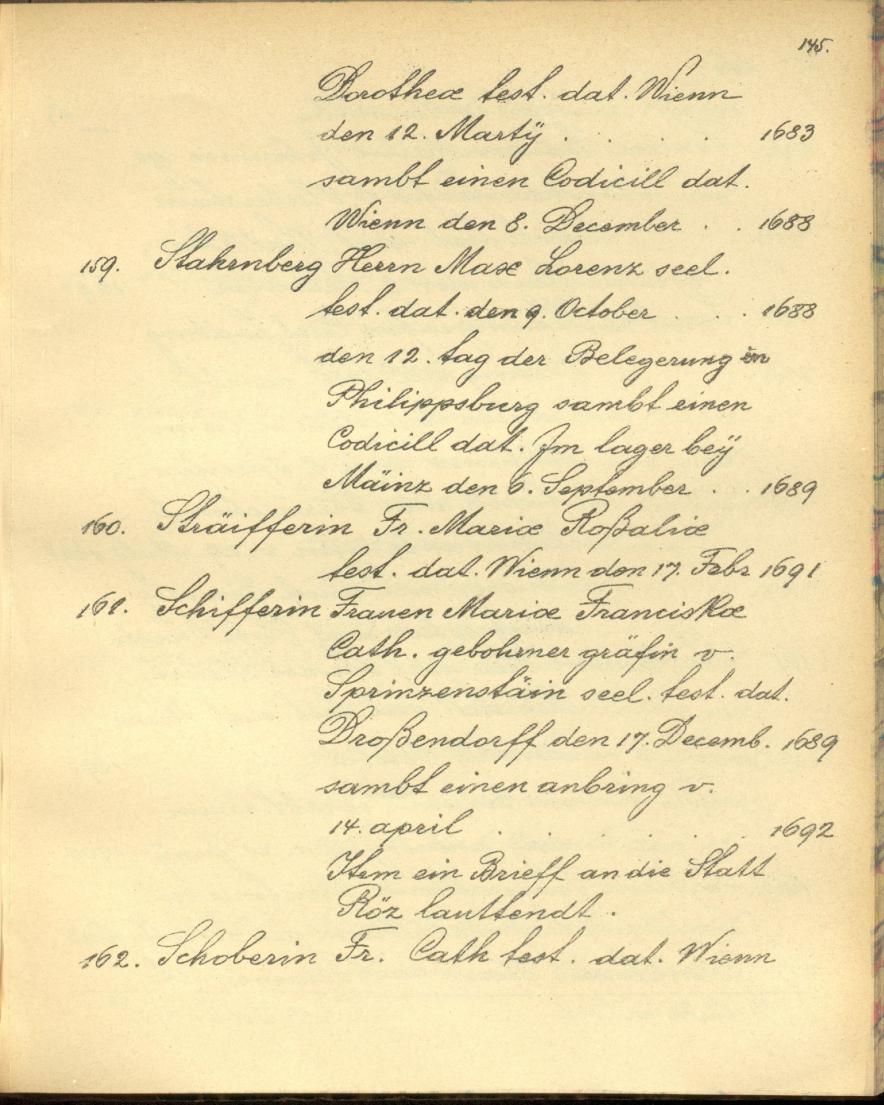 145.
Dorotheæ test. dat. Wienn
den 12. Martÿ . . . . 1683
sambt einen Codicill dat.
Wienn den 8. December . . 1688
159. Stahrnberg Herrn Max Lorenz seel.
test. dat. den 9. October . . . 1688
den 12. tag der Belegerung in
Philippsburg sambt einen
Codicill dat. Jm lager beÿ
Mäinz den 6. September . . 1689
160. Sträifferin Fr. Mariæ Roßaliæ
test. dat. Wienn den 17. Febr 1691
161. Schifferin Frauen Mariæ Franciskæ
Cath. gebohrner gräfin v.
Sprinzenstäin seel. test. dat.
Droßendorff den 17. Decemb. 1689
sambt einen anbring v.
14. april . . . . . 1692
Item ein Brieff an die Statt
Röz lauttendt .
162. Schoberin Fr. Cath test. dat. Wienn